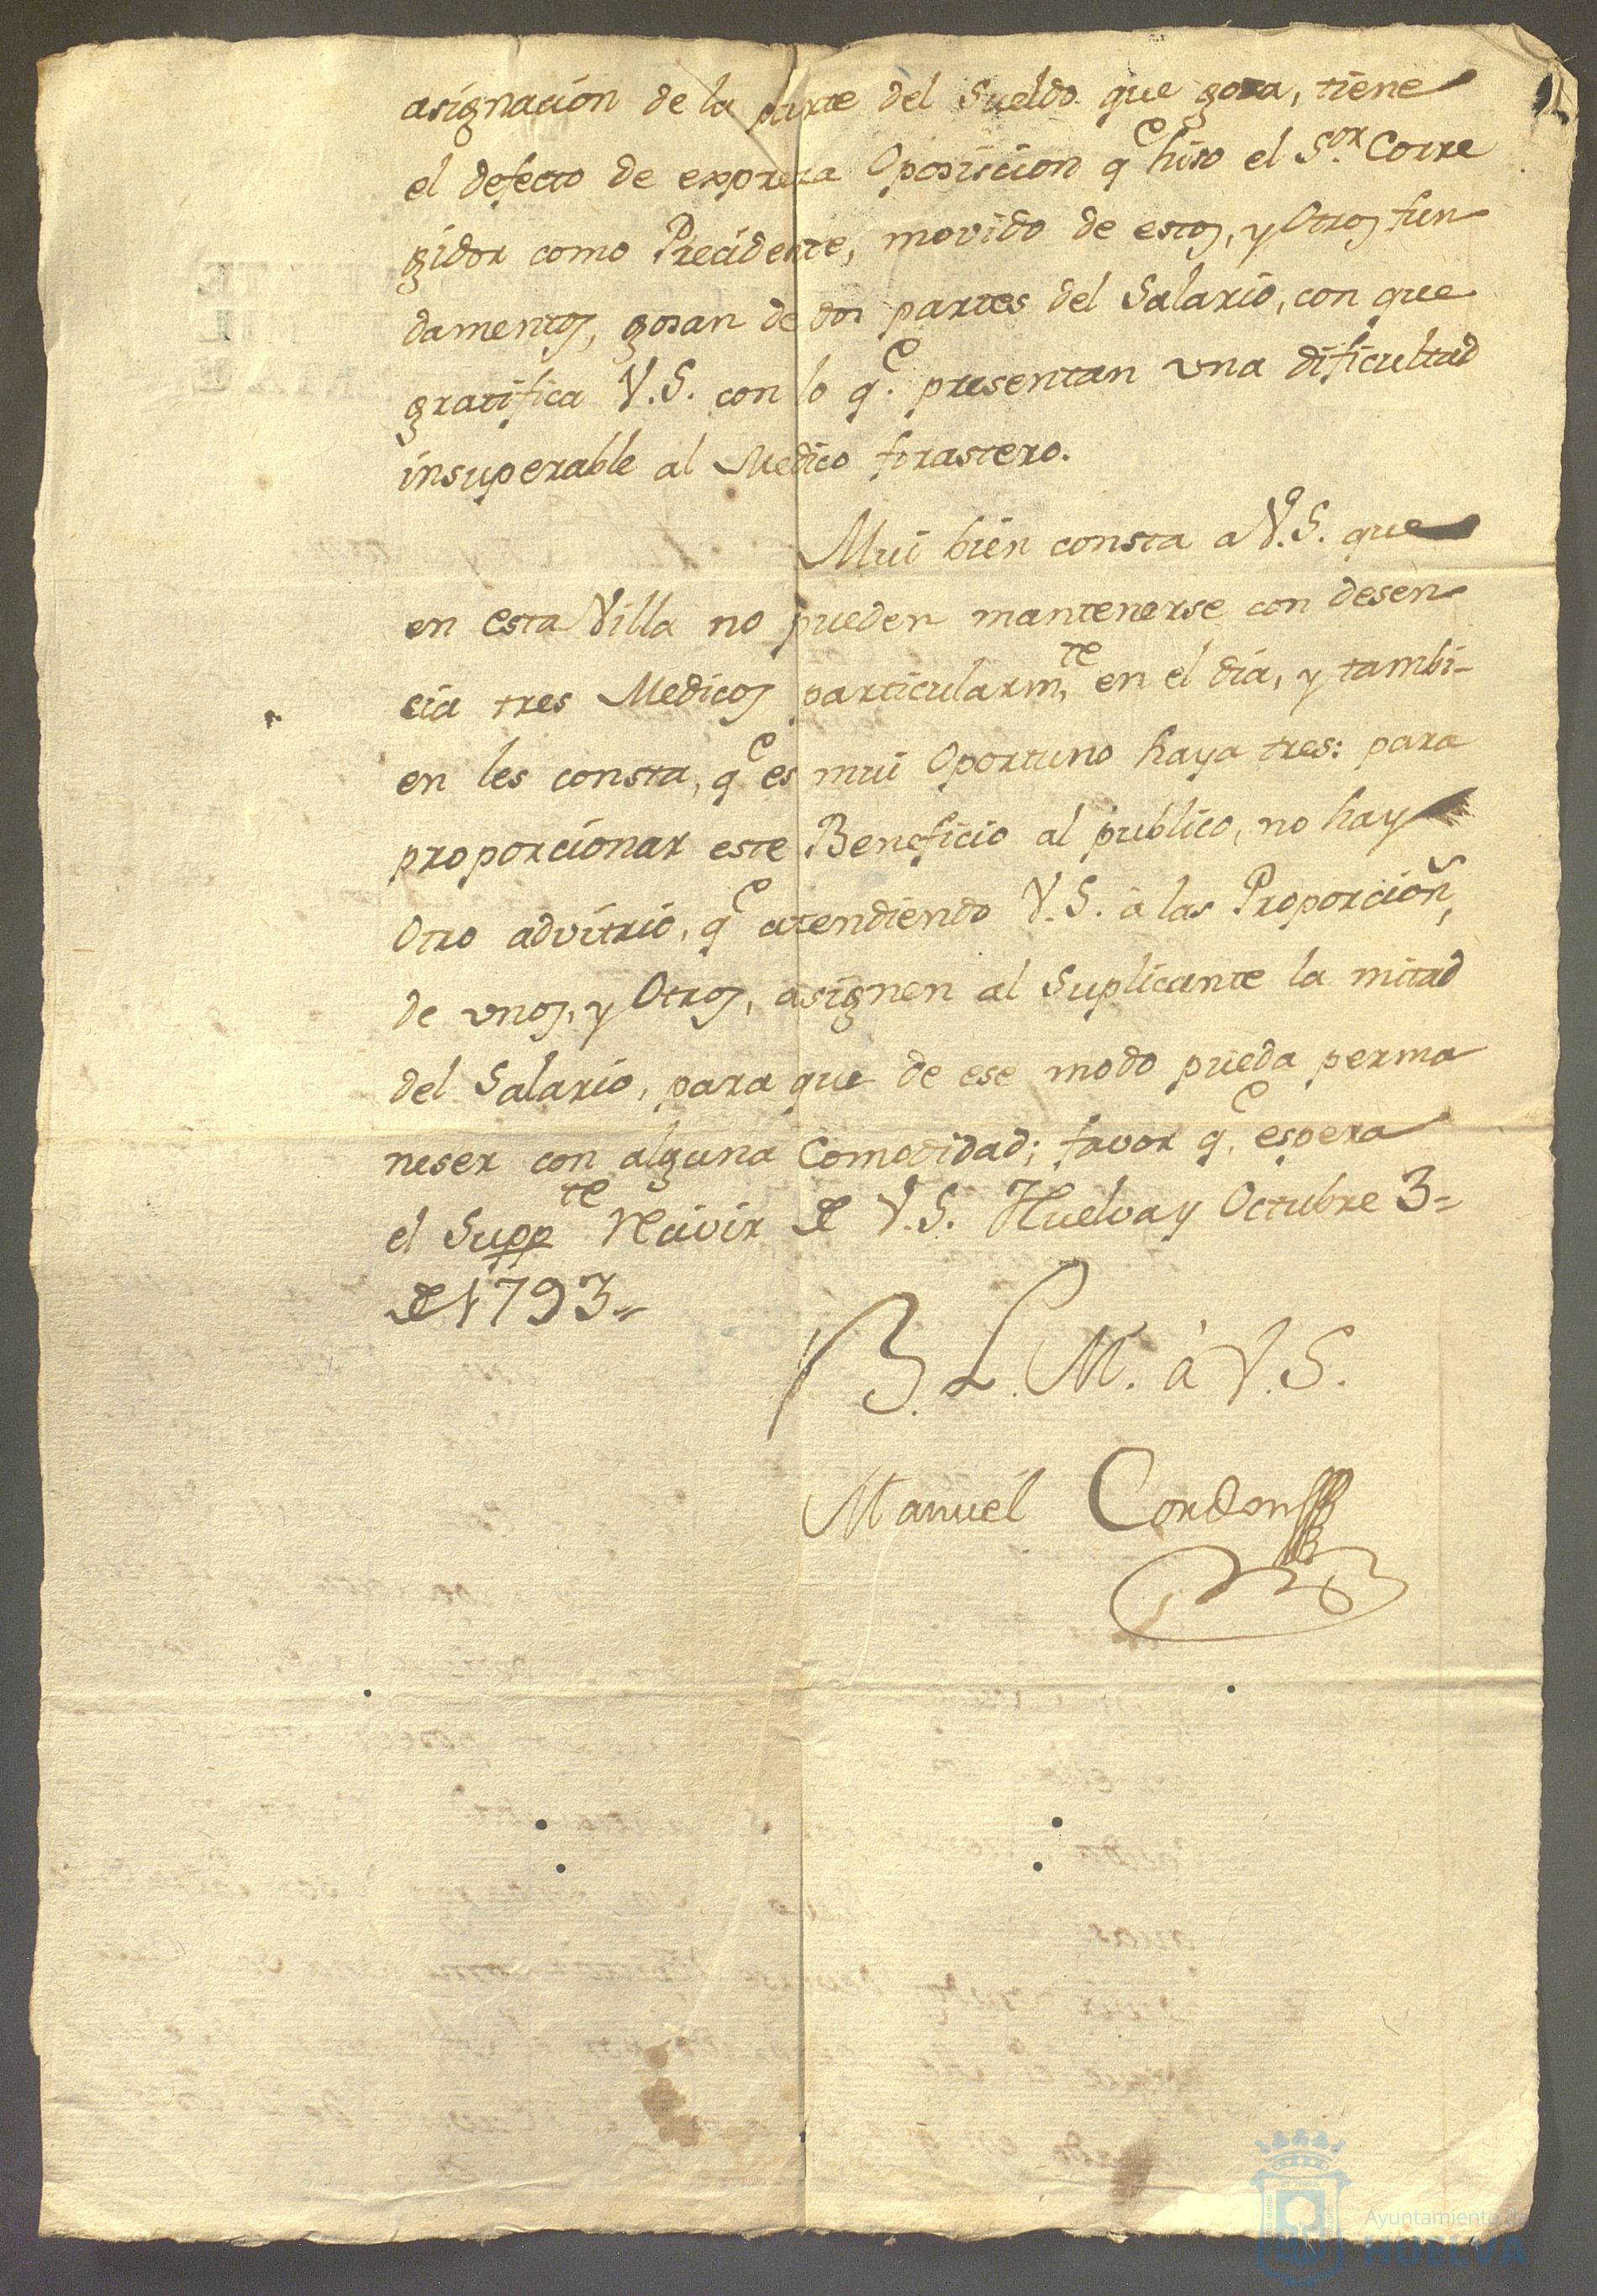 asignacion de la parte del Sueldo que gosa, tiene
el defecto de expresa Oposiscion q.e hiso el S.or Corre
gidor como Precidente, movido de estos, y Otros fun
damentos, gosan de dos partes del Salario, con que
gratifica V.S. con lo q.e presentan una dificultad
insuperable al Medico forastero.
Mui bien consta a V.S. que
en esta Villa no pueden mantenerse con desen
cia tres Medicos particularm.te en el dia, y tambi-
en les consta, q.e es mui Oportuno haya tres: para
proporcionar este Beneficio al publico, no hay
Otro advitrio, q.e atendiendo V.S. à las Proporcioñ,
de unos, y Otros, asignen al Suplicante la mitad
del Salario, para que de ese modo pueda perma
neser con alguna Comodidad; favor q.e espera
el Supp.te Recivir de V.S. Huelva y Octubre 3=
de 1793=
B. L. M. à V.S.
Manuel Cordon
Ayuntamiento de
HUELVA